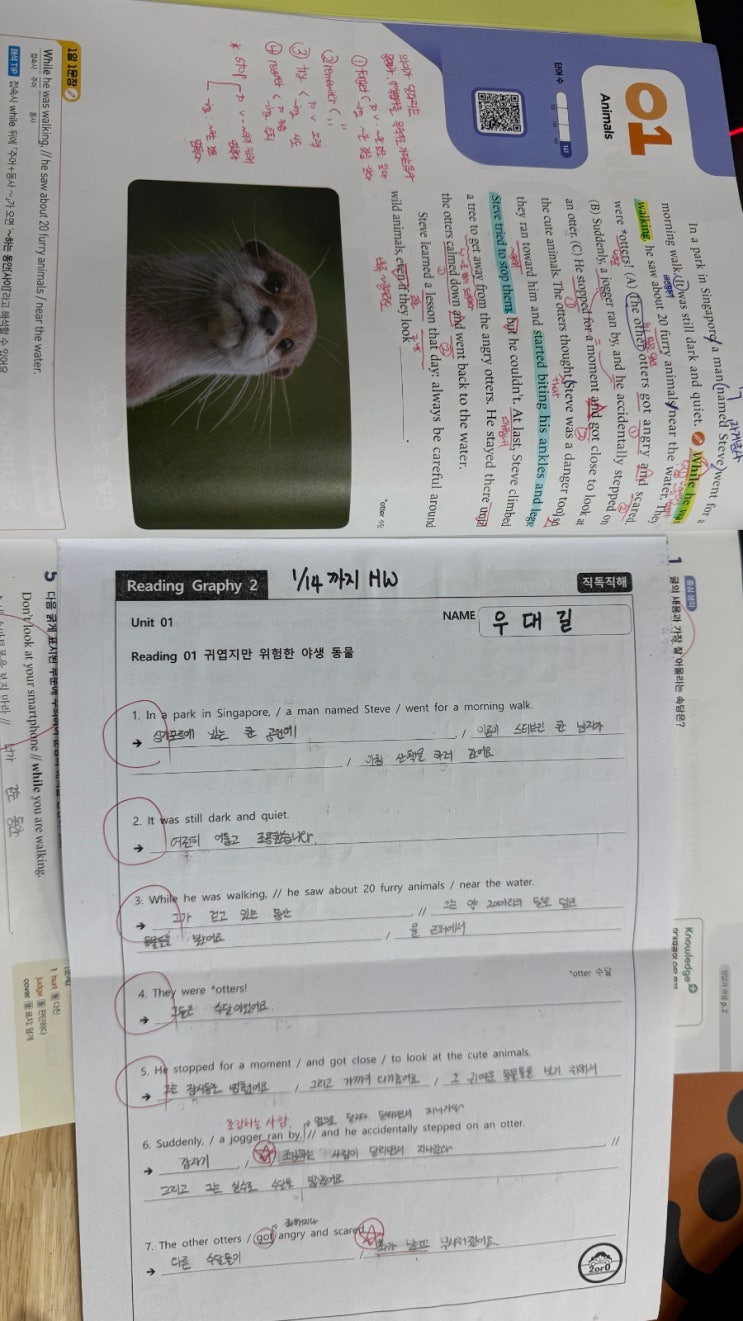 01
Animals
단어 수
In a park in Singapore, a man named Steve went for a
morning walk. It was still dark and quiet. While he was
walking, he saw about 20 furry animals near the water. They
were *otters! (A) The other otters got angry and scared.
(B) Suddenly, a jogger ran by, and he accidentally stepped on
an otter. (C) He stopped for a moment and got close to look at
the cute animals. The otters thought Steve was a danger too, so
they ran toward him and started biting his ankles and legs.
Steve tried to stop them, but he couldn't. At last, Steve climbed
a tree to get away from the angry otters. He stayed there until
the otters calmed down and went back to the water.
Steve learned a lesson that day: always be careful around
wild animals, even if they look
*otter 수달
1일 1문장
While he was walking, // he saw about 20 furry animals / near the water.
접속사 주어 동사
해석 TIP 접속사 while 뒤에 「주어+동사 ~」가 오면 '~하는 동안[사이]'라고 해석할 수 있어요
중심 생각
1 글의 내용과 가장 잘 어울리는 속담은?
Knowledge
정답과 해설 p.2
5 다음 굵게 표시된 부분에
Don't look at your smartphone // while you are walking.
네가 걷는 동안
1 hurt 동 다친
judge 동 판단하다
cover 명 표지; 덮개
Reading Graphy 2
1/14 까지 HW
직독직해
Unit 01
NAME 우대길
Reading 01 귀엽지만 위험한 야생 동물
1. In a park in Singapore, / a man named Steve / went for a morning walk.
➔ 싱가포르에 있는 한 공원에 / 이름이 스티브인 한 남자가
/ 아침 산책을 하러 갔어요
2. It was still dark and quiet.
➔ 여전히 어둡고 조용했습니다.
3. While he was walking, // he saw about 20 furry animals / near the water.
➔ 그가 걷고 있는 동안 // 그는 약 20마리의 털로 덮인
동물들을 보았어요 / 물 근처에서
4. They were *otters!
*otter 수달
➔ 그들은 수달이었어요.
5. He stopped for a moment / and got close / to look at the cute animals.
➔ 그는 잠시동안 멈췄어요 / 그리고 가까이 다가갔어요 / 그 귀여운 동물들을 보기 위해서
조깅하는 사람
6. Suddenly, / a jogger ran by, // and he accidentally stepped on an otter.
➔ 갑자기 / 조깅하는 사람이 달리면서 지나갔다 //
그리고 그는 실수로 수달을 밟았어요
7. The other otters / got angry and scared.
➔ 다른 수달들이 / 화가 났고 무서워했어요.
2or0